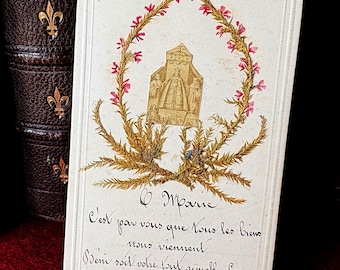 O Marie
C'est par vous que tous les biens
nous viennent
Béni soit votre tout